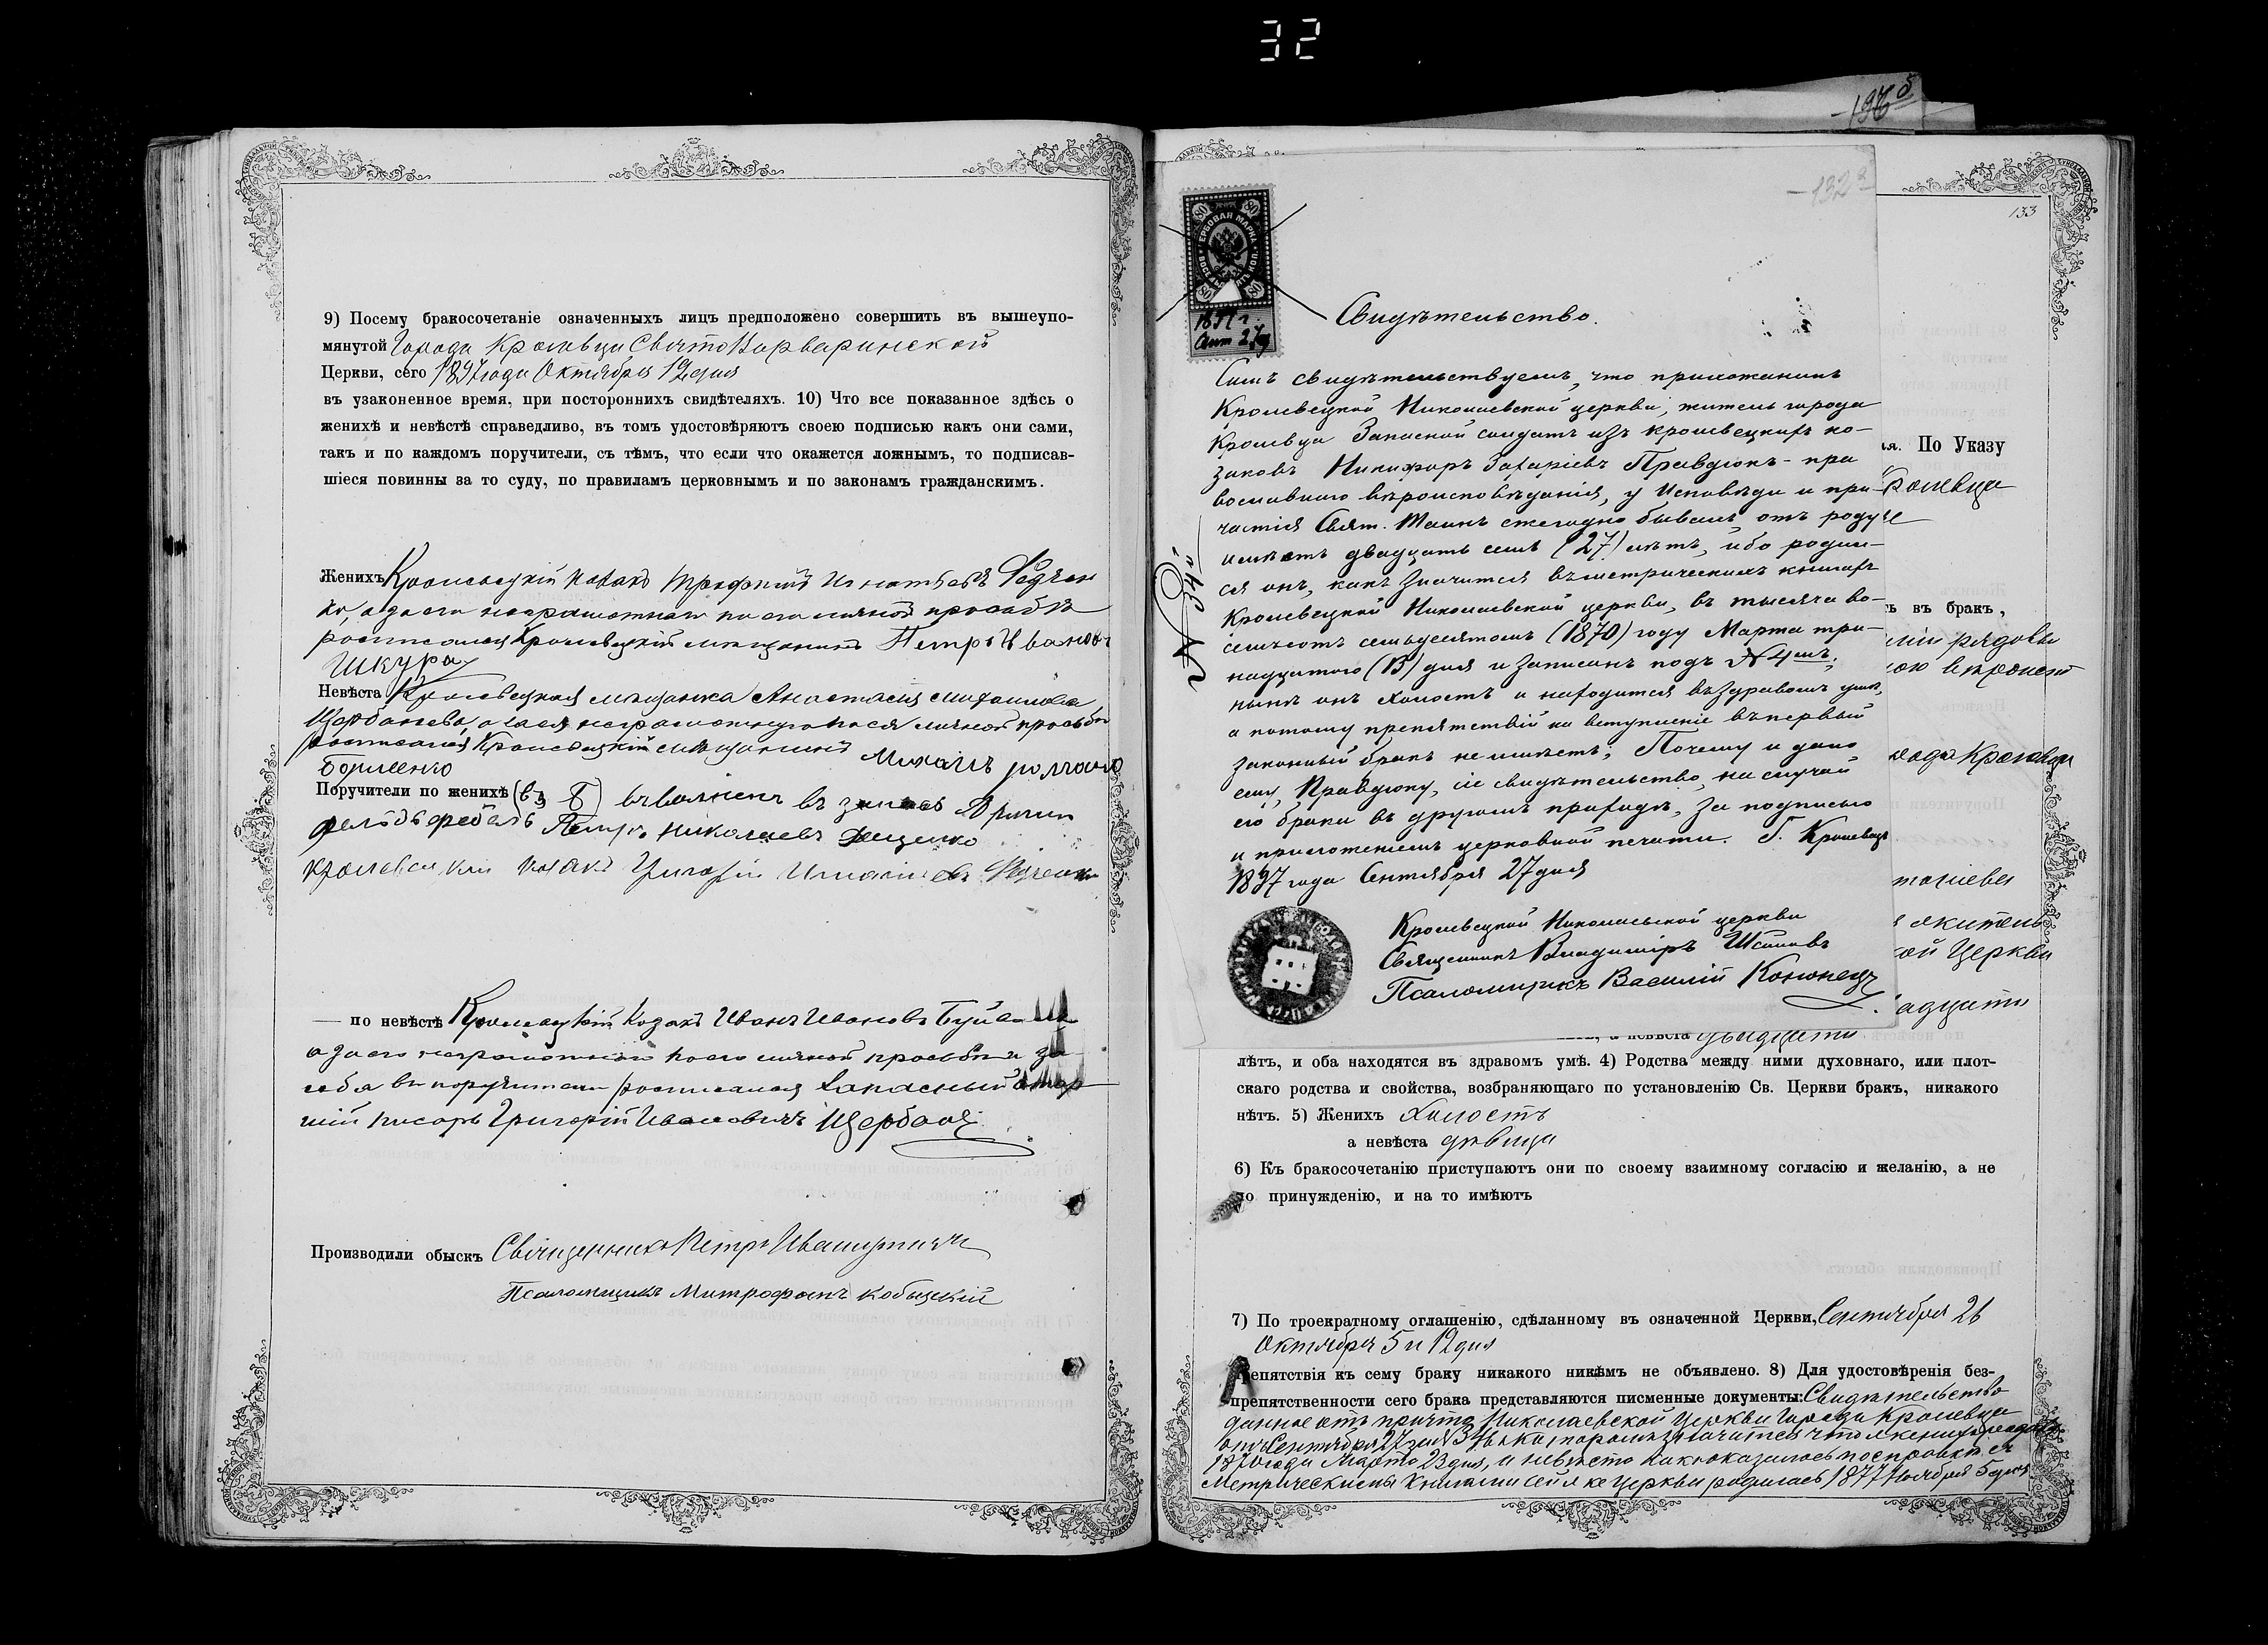 32
9) Посему бракосочетаніе означенныхъ лицъ предположено совершить въ вышеупо-
мянутой Города Кролевца СвятоВарваринской
Церкви, сего 1897 года Октября 12 дня
въ узаконенное время, при постороннихъ свидѣтеляхъ. 10) Что все показанное здѣсь о
женихѣ и невѣстѣ справедливо, въ томъ удостовѣряютъ своею подписью какъ они сами,
такъ и по каждомъ поручители, съ тѣмъ, что если что окажется ложнымъ, то подписав-
шіеся повинны за то суду, по правиламъ церковнымъ и по законамъ гражданскимъ.
Женихъ Кролевецкій козакъ Трофимъ Игнатьевъ Федчен
ко, а за его неграмотнаго по его личной просьбѣ
росписался Кролевецкій мещанинъ Петръ Ивановъ
Шкура
Невѣста Кролевецкая мещанка Анастасія Михаилова
Щербакова, а за ея неграмотную по ея личной просьбѣ
росписался Кролевецкій мещанинъ Михаилъ
Поручители по женихѣ въ
Фельдфебель Петръ Николаевъ Ященко
козакъ Григорій
— по невѣстѣ Кролевецкій Козакъ Иванъ Ивановъ
а за его неграмотнаго по его личной просьбѣ и за
себя въ поручители росписался Запасный стар
шій писарь Григорій Ивановичъ Щербакъ
Производили обыскъ Священникъ Петръ
Псаломщикъ Митрофанъ Кобыцкій
133
1897 г.
Сент 27 д
Свидѣтельство.
Симъ свидѣтельствуемъ, что прихожанинъ
Кролевецкой Николаевской церкви, житель города
Кролевца Запасной солдатъ изъ кролевецкихъ ко-
заковъ Никифоръ Захаріевъ Правдюкъ - пра
вославнаго вѣроисповѣданія, у Исповѣди и при-
частія Свят. Таинъ ежегодно бываетъ, отъ роду
имѣетъ двадцать семь (27) лѣтъ, ибо родил-
ся онъ, какъ значится въ метрическихъ книгахъ
Кролевецкой Николаевской церкви, въ тысяча во-
семьсотъ семьдесятомъ (1870) году Марта три-
надцатого (13) дня и записанъ подъ № 4 мъ;
нынѣ онъ холостъ и находится въ здравомъ умѣ,
а потому препятствій на вступленіе въ первый
законный бракъ не имѣетъ; Почему и дано
ему, Правдюку, сіе свидѣтельство, на случай
его брака въ другомъ приходѣ, за подписью
и приложеніемъ церковной печати. Г. Кролевецъ
1897 года Сентября 27 дня
Кролевецкой Николаевской церкви
Священникъ Владиміръ
Псаломщикъ Василій Конюнецъ
По Указу
Кролевца
въ бракъ,
рода Кролевца
житель
ой Церкви
адцати
а невѣста двадцати
лѣтъ, и оба находятся въ здравомъ умѣ. 4) Родства между ними духовнаго, или плот-
скаго родства и свойства, возбраняющаго по установленію Св. Церкви бракъ, никакого
нѣтъ. 5) Женихъ Холостъ
а невѣста дѣвица
6) Къ бракосочетанію приступаютъ они по своему взаимному согласію и желанію, а не
по принужденію, и на то имѣютъ
7) По троекратному оглашенію, сдѣланному въ означенной Церкви, Сентября 26
Октября 5 и 12 дня
препятствія къ сему браку никакого никѣмъ не объявлено. 8) Для удостовѣренія без-
препятственности сего брака представляются писменные документы: Свидѣтельство
данное отъ причта Николаевской Церкви Города Кролевца
отъ Сентября 27 дня № 34 въ которомъ значится что женихъ родился
1870 года Марта 23 дня, а невѣста какъ оказалось по справкѣ съ
Метрическими книгами сей же Церкви родилась 1877 Ноября 5 дня